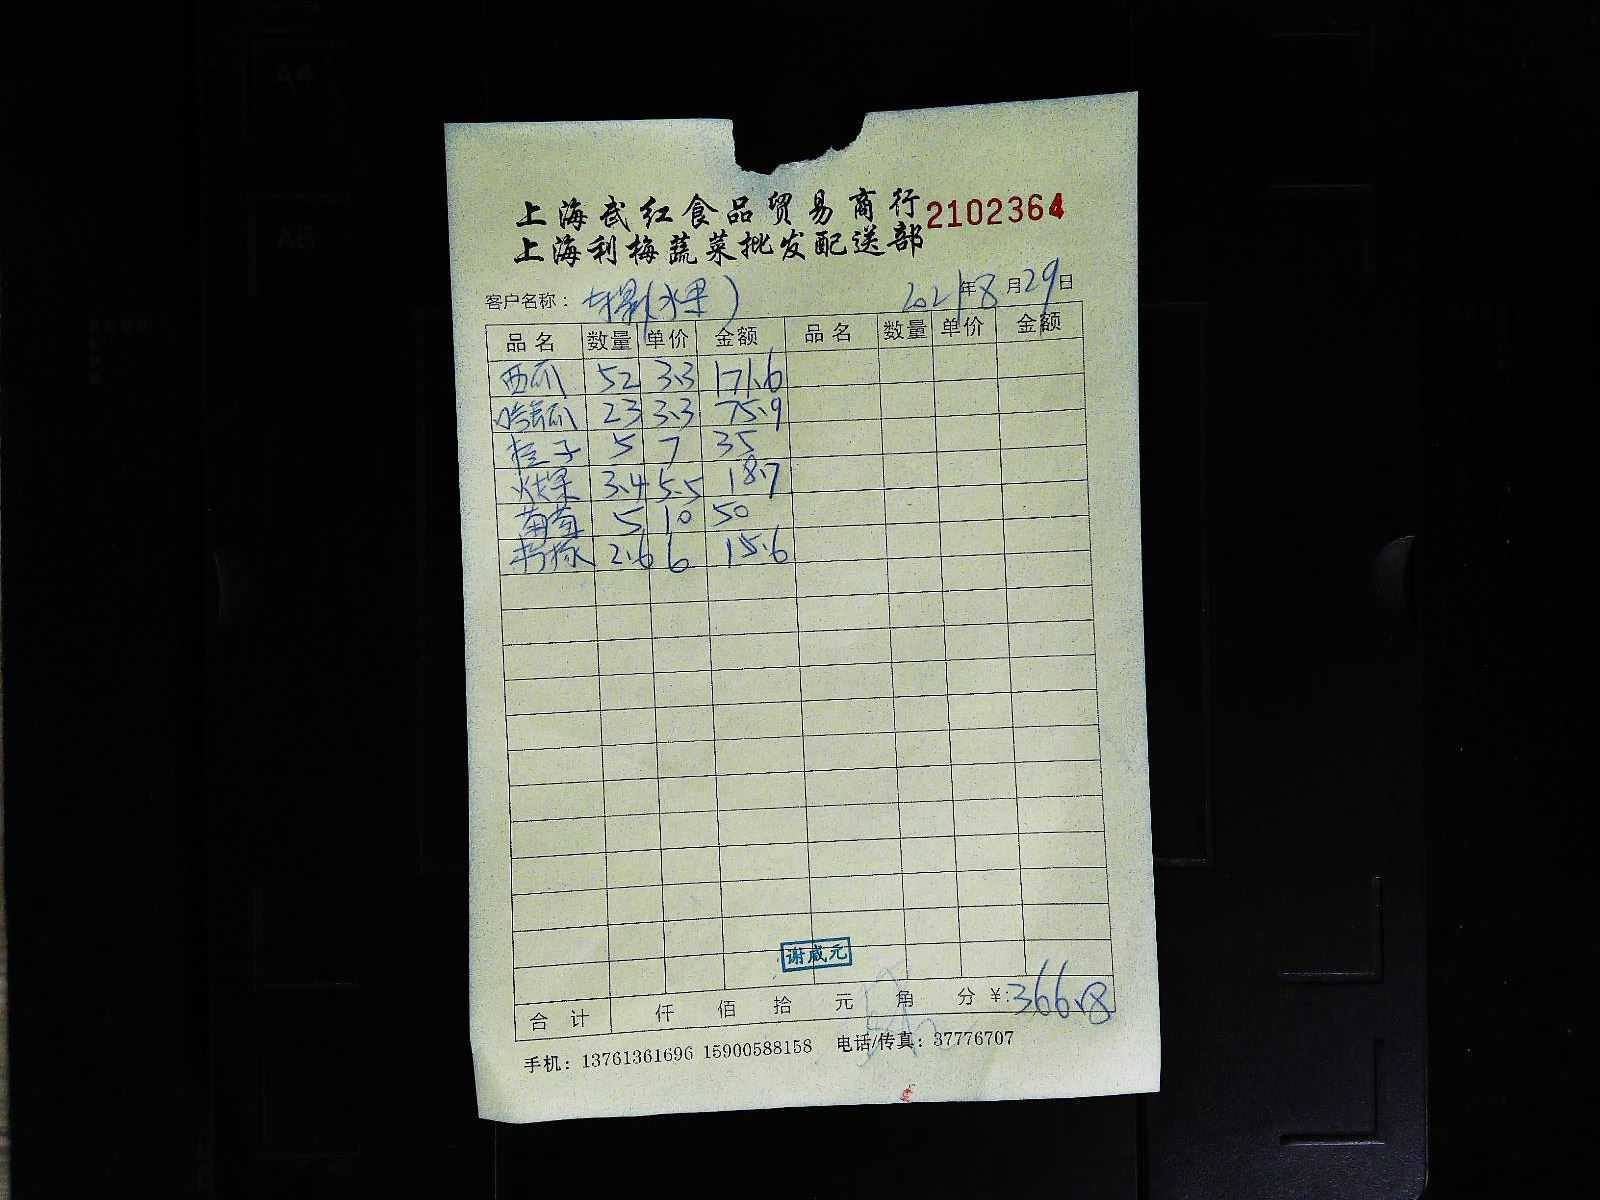 A4
A5
上海武红食品贸易商行 2102364
上海利梅蔬菜批发配送部
客户名称： (水果) 2021年8月29日
品名 数量 单价 金额 品名 数量 单价 金额
西瓜 52 3.3 171.6
哈密瓜 23 3.3 75.9
桔子 5 7 35
3.4 5.5 18.7
葡萄 5 10 50
柠檬 2.6 6 15.6
谢咸元
合计 仟 佰 拾 元 角 分 ¥: 366.8
手机：13761361696 15900588158 电话/传真：37776707